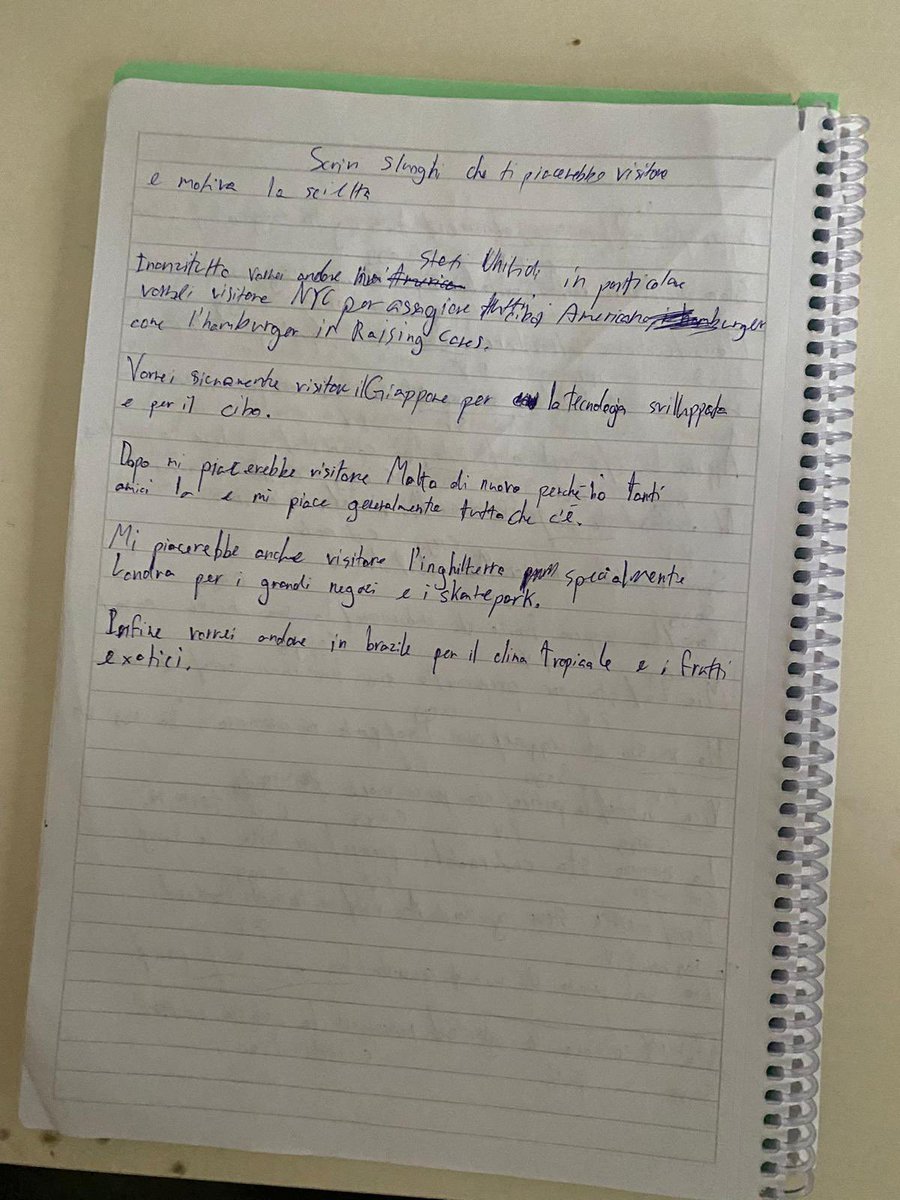 Scrivi 5 luoghi che ti piacerebbe visitare
e motiva la scelta
Stati Uniti di
Inanzitutto vorrei andare in America in particolare
vorrei visitare NYC per assegiare tutti i cibi Americano hamburger
come l'hamburger in Raising Canes.
Vorrei sicuramente visitare il Giappone per la tecnologia sviluppata
e per il cibo.
Dopo mi piacerebbe visitare Malta di nuovo perché ho tanti
amici la e mi piace generalmente tutta che c'è.
Mi piacerebbe anche visitare l'inghilterra specialmente
Londra per i grandi negozi e i skatepark.
Infine vorrei andare in brazile per il clima tropicale e i frutti
exotici.